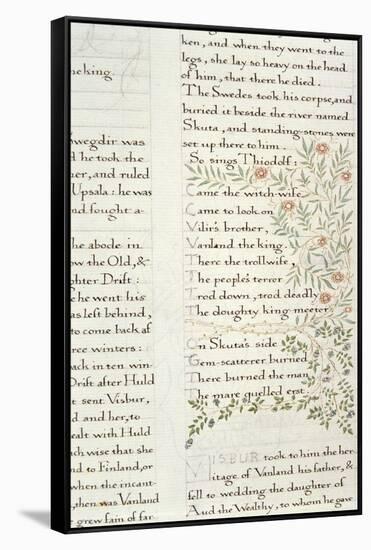 ne king.
wegdir was
d he took the
er, and ruled
Upsala: he was
nd fought a-
he abode in
ow the Old, &
ghter Drift:
he went his
as left behind,
to come back af
ree winters:
ack in ten win-
Drift after Huld
t sent Visbur,
d and her, to
ealt with Huld
ch wise that she
nd to Finland, or
hen the incant-
den, then was Vanland
r grew fain of far-
ken, and when they went to the
legs, she lay so heavy on the head
of him, that there he died.
The Swedes took his corpse, and
buried it beside the river named
Skuta, and standing-stones were
set up there to him.
So sings Thiodolf:
Came the witch-wife
Came to look on
Vilir's brother,
Vanland the king.
There the trollwife,
The people's terror
Trod down, trod deadly
The doughty king-meeter.
On Skuta's side
Gem-scatterer burned
There burned the man
The mare quelled erst.
VISBUR took to him the her-
itage of Vanland his father, &
fell to wedding the daughter of
Aud the Wealthy, to whom he gave